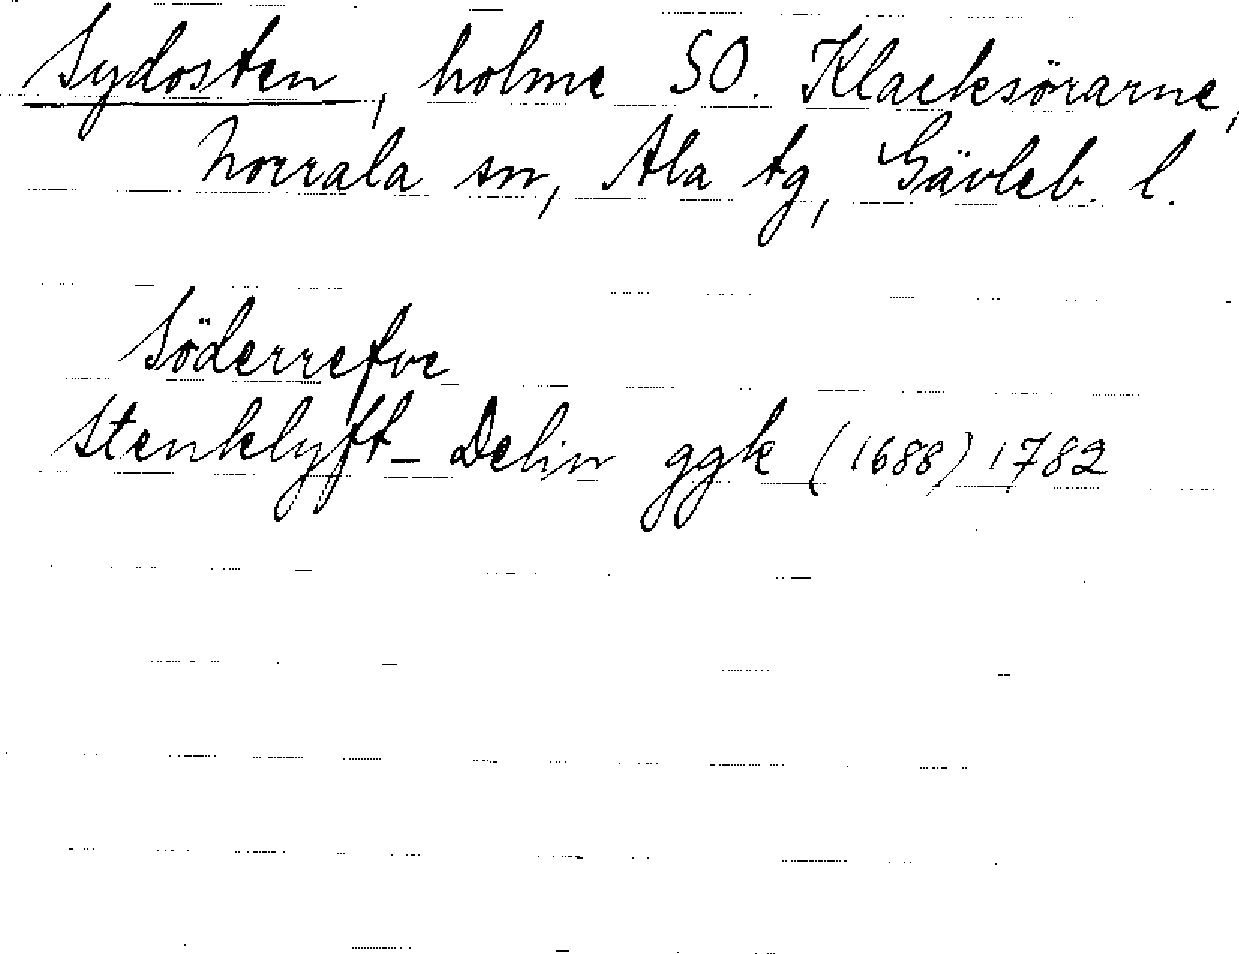 Sydosten, holme SO. Klacksörarne,
Norrala sn, Ala tg, Gävleb. l.
Söderrefve
Stenklyft - Delin ggk (1688) 1782